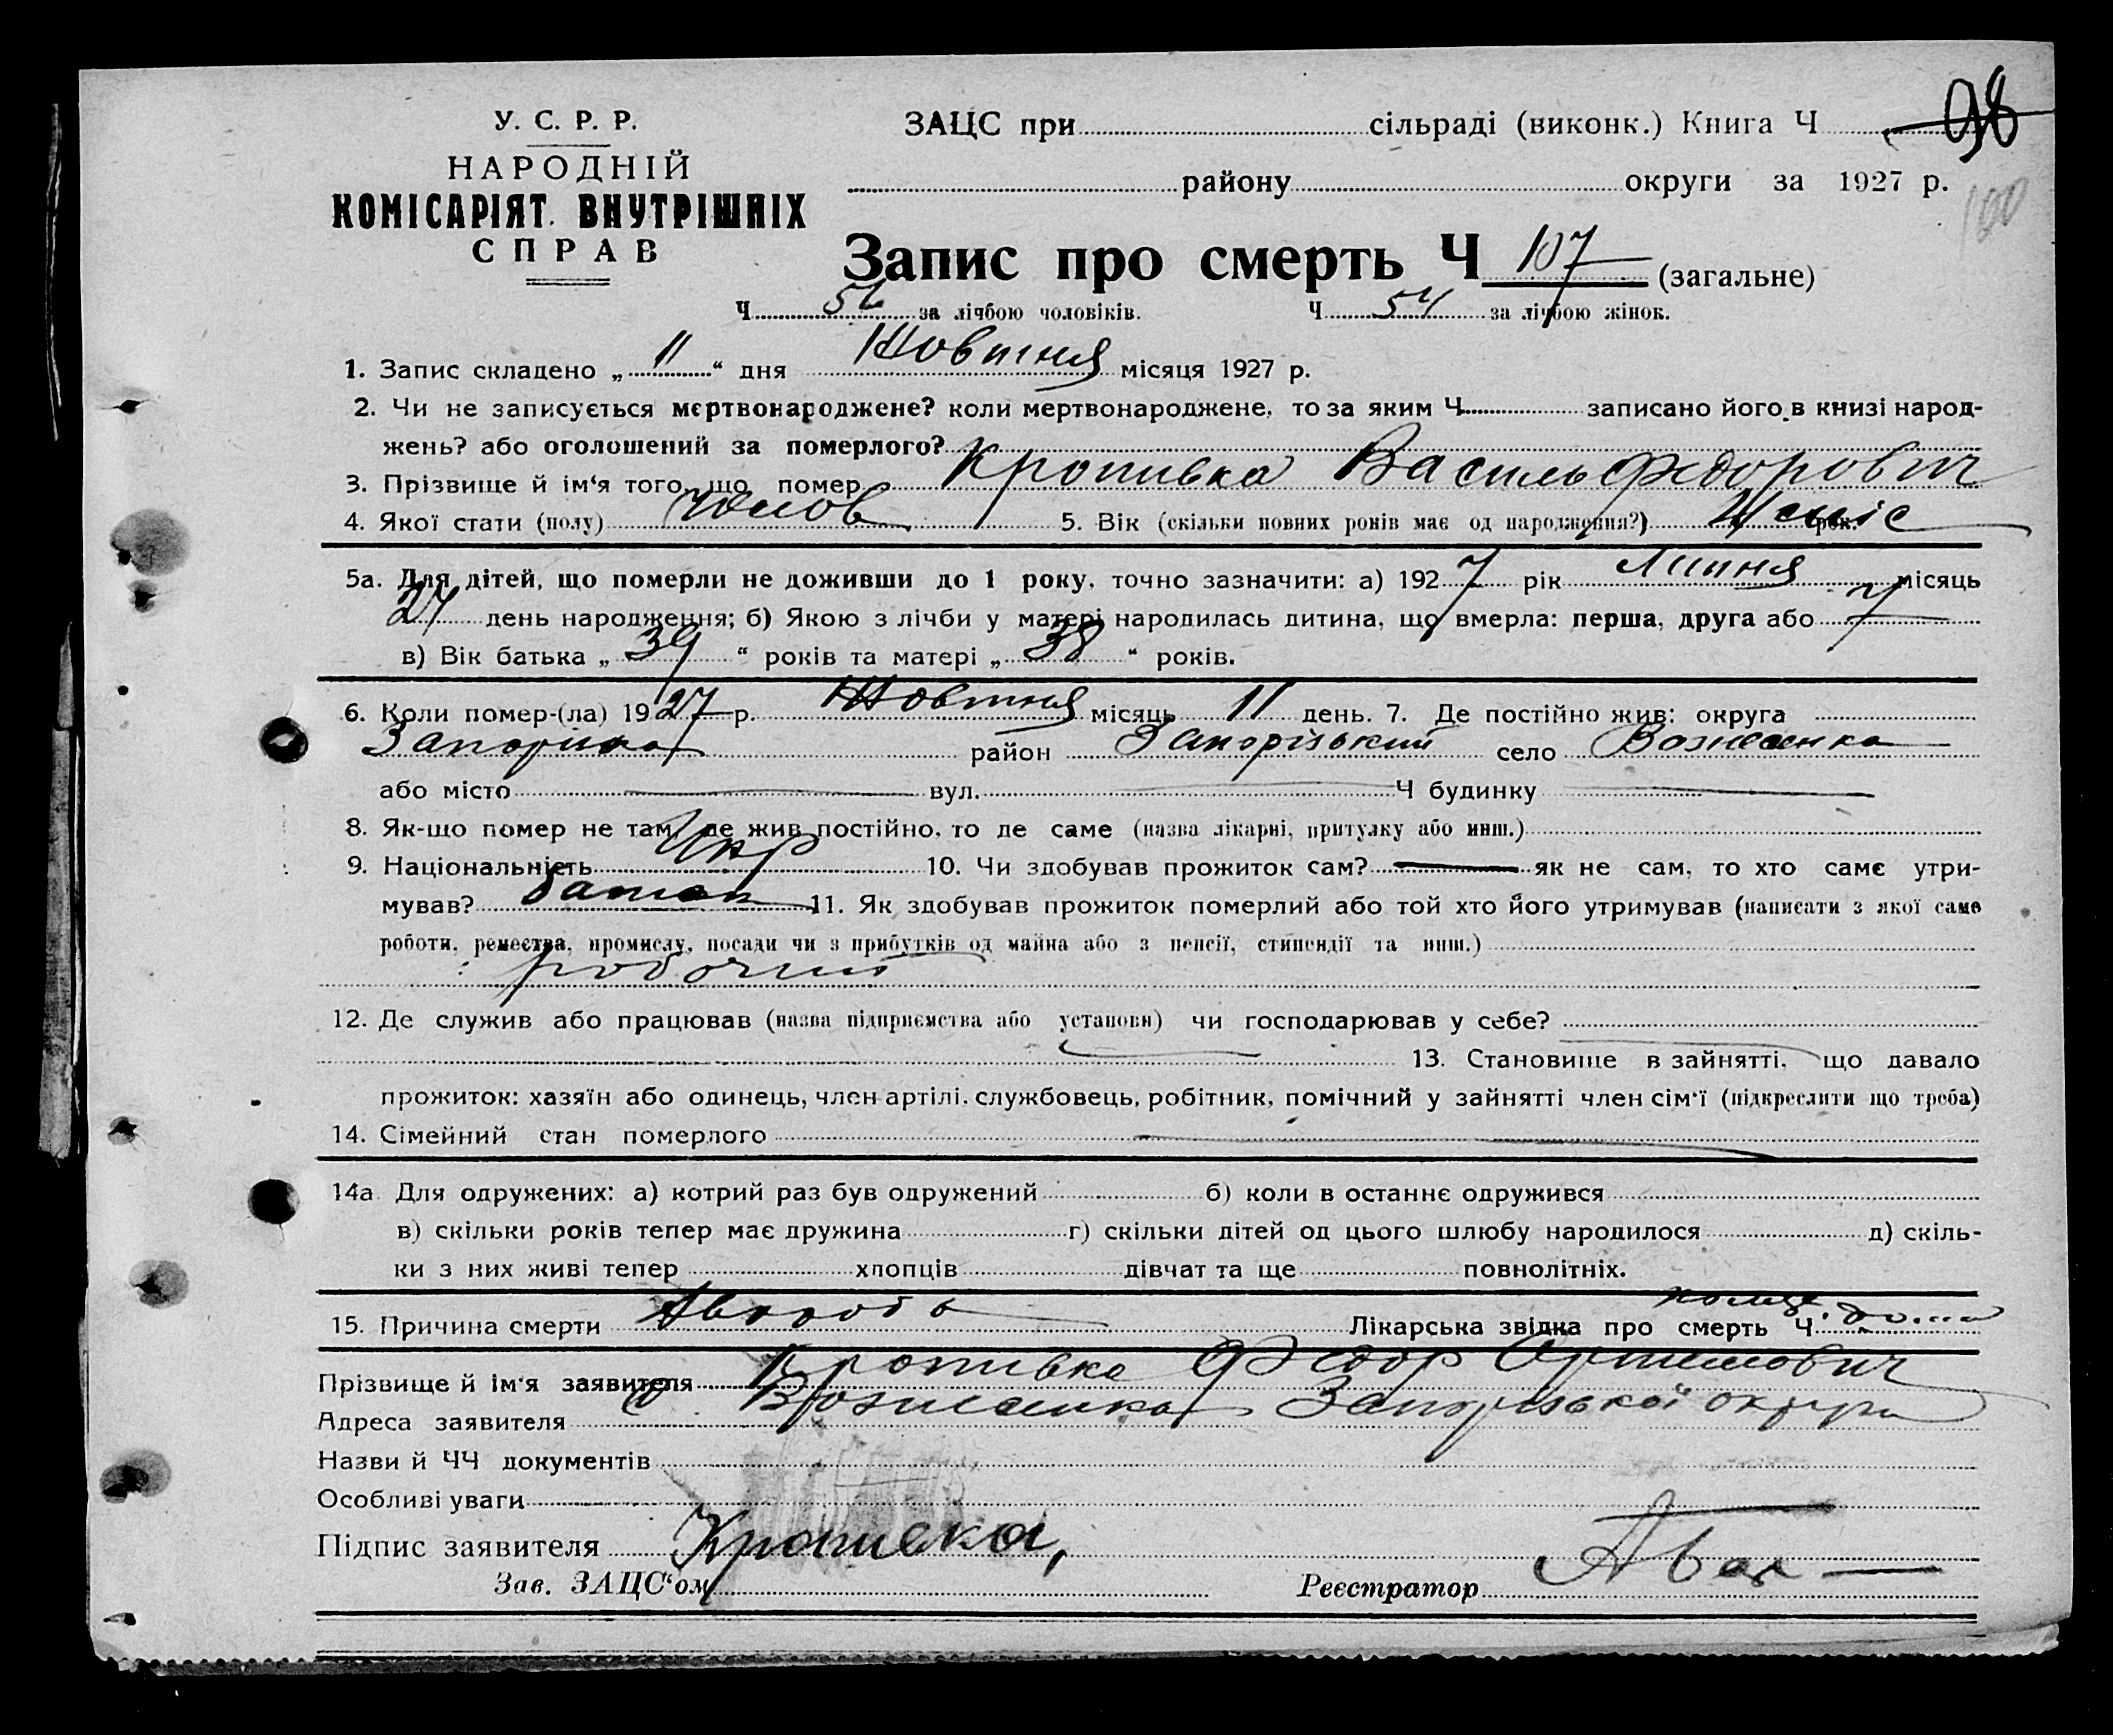 98
У. С. Р. Р.
НАРОДНІЙ
КОМІСАРІЯТ ВНУТРІШНІХ
СПРАВ
ЗАЦС при сільраді (виконк.) Книга Ч
району округи за 1927 р.
100
Запис про смерть Ч 107 (загальне)
Ч за лічбою чоловіків. Ч 54 за лічбою жінок.
1. Запис складено „ 11 “ дня Жовтня місяця 1927 р.
2. Чи не записується мертвонароджене? коли мертвонароджене, то за яким Ч записано його в книзі народ-
жень? або оголошений за померлого?
3. Прізвище й ім‘я того, що помер Кропивка Василь Федорович
4. Якої стати (полу) Чолов 5. Вік (скільки повних років має од народження?) рок.
5а. Для дітей, що померли не доживши до 1 року, точно зазначити: а) 1927 рік Липня місяць
27 день народження; б) Якою з лічби у матері народилась дитина, що вмерла: перша, друга або 7
в) Вік батька „ 39 “ років та матері „ 38 “ років.
6. Коли помер-(ла) 1927 р. Жовтня місяць 11 день. 7. Де постійно жив: округа
район Запорізький село Вознесенка
або місто вул. Ч будинку
8. Як-що помер не там, де жив постійно, то де саме (назва лікарні, притулку або инш.)
9. Національність Укр 10. Чи здобував прожиток сам? як не сам, то хто саме утри-
мував? батько 11. Як здобував прожиток померлий або той хто його утримував (написати з якої саме
роботи, ремества, промислу, посади чи з прибутків од майна або з пенсії, стипендії та инш.)
робочий
12. Де служив або працював (назва підприємства або установи) чи господарював у себе?
13. Становище в зайнятті, що давало
прожиток: хазяїн або одинець, член артілі, службовець, робітник, помічний у зайнятті член сім‘ї (підкреслити що треба)
14. Сімейний стан померлого
14а Для одружених: а) котрий раз був одружений б) коли в останнє одружився
в) скільки років тепер має дружина г) скільки дітей од цього шлюбу народилося д) скіль-
ки з них живі тепер хлопців дівчат та ще повнолітніх.
15. Причина смерти Лікарська звідка про смерть Ч
Прізвище й ім‘я заявителя Кропивка Федор Артемович
Адреса заявителя Вознесенка Запорізької округи
Назви й ЧЧ документів
Особливі уваги
Підпис заявителя Кропивка,
Зав. ЗАЦС‘ом Реєстратор